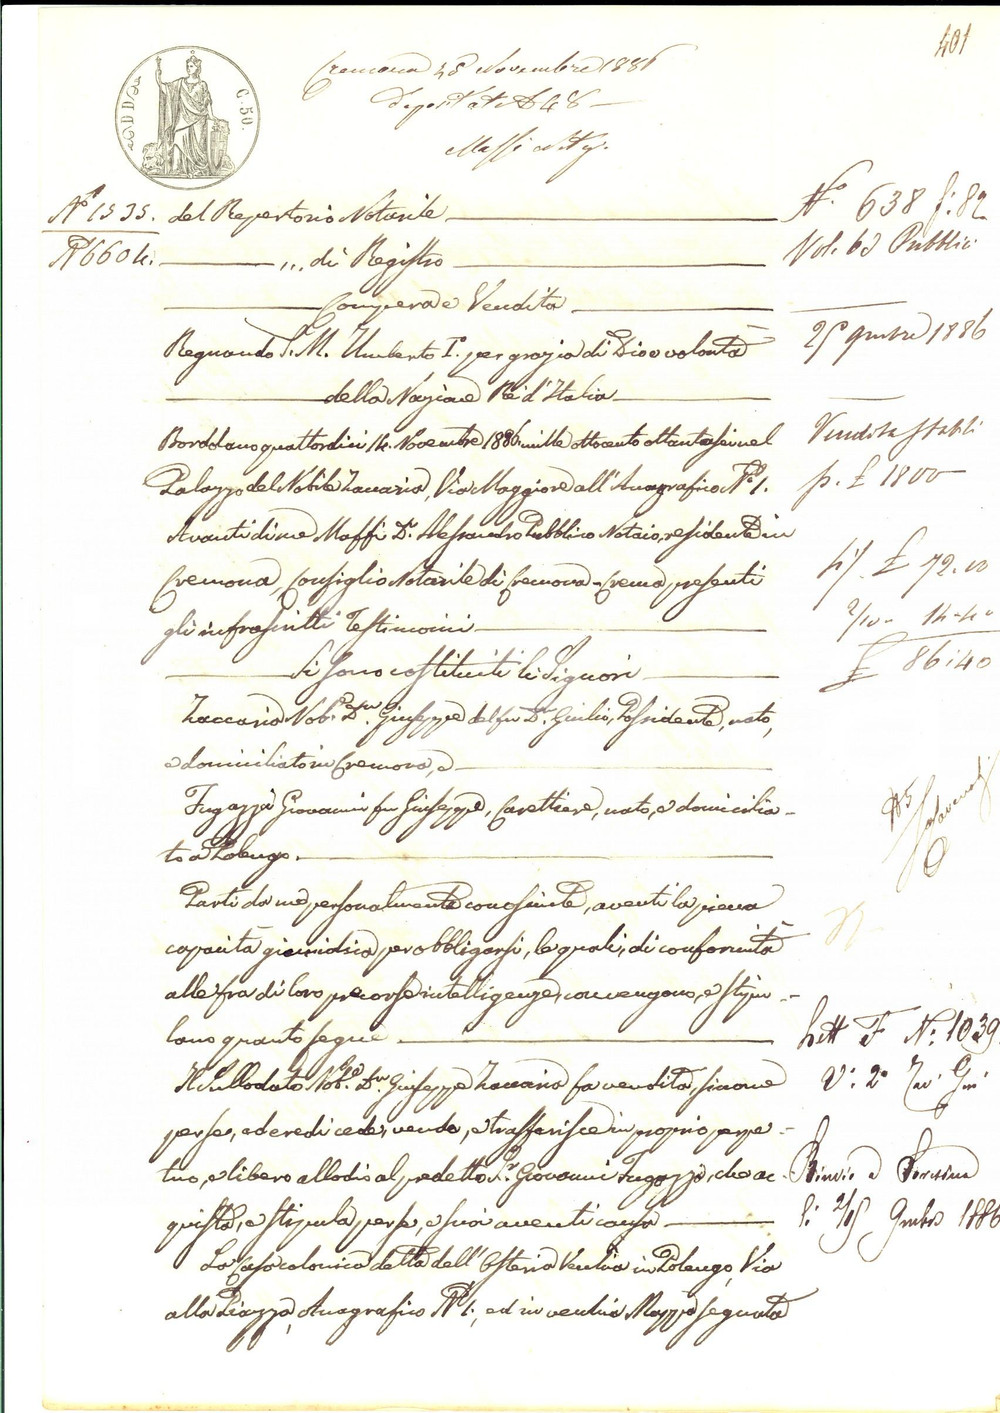 401
C. 50.
Cremona 28 Novembre 1886
Maffi Not.
N° 1535. del Repertorio Notarile
N° 6604. ... di Registro
Compera e Vendita
Regnando S. M. Umberto I°. per grazia di Dio e volontà
della Nazione Re d'Italia
Bordolano quattordici 14. Novembre 1886. mille ottocento ottantasei nel
Palazzo del Nobile Zaccaria, Via Maggiore all'Anagrafico N° 1.
Avanti di me Maffi Dr. Alessandro Pubblico Notaio, residente in
Cremona, Consiglio Notarile di Cremona-Crema, presenti
gli infrascritti Testimoni
Si sono costituiti li Signori
Zaccaria Nob. Dn. Giuseppe del fu Dn. Giulio, Possidente, nato,
e domiciliato in Cremona, e
Fugazza Giovanni fu Giuseppe, Carettiere, nato, e domicilia-
to a Polengo.
Parti da me personalmente conosciute, aventi la piena
capacità giuridica per obbligarsi, le quali, di conformità
alle fra di loro precorse intelligenze, convengono, e stipu-
lano quanto segue
Il Sullodato Nob. Dn. Giuseppe Zaccaria fa vendita, siccome
per se, ed eredi cede, vende, e trasferisce in proprio perpe-
tuo, e libero allodio al predetto Sr. Giovanni Fugazza, che ac-
quista, e stipula per se, e suoi aventi causa
La Casa colonica detta dell'Osteria Vecchia in Polengo, Via
alla Piazza, Anagrafico N° 1., ed in vecchia Mappa segnata
N° 638 f: 82
Vol. 63 Pubblici
25 9mbre 1886
Vendita stabili
p. £ 1800
£ 72.00
2/10 14.40
£ 86:40
N° 5
Lett F N: 1039